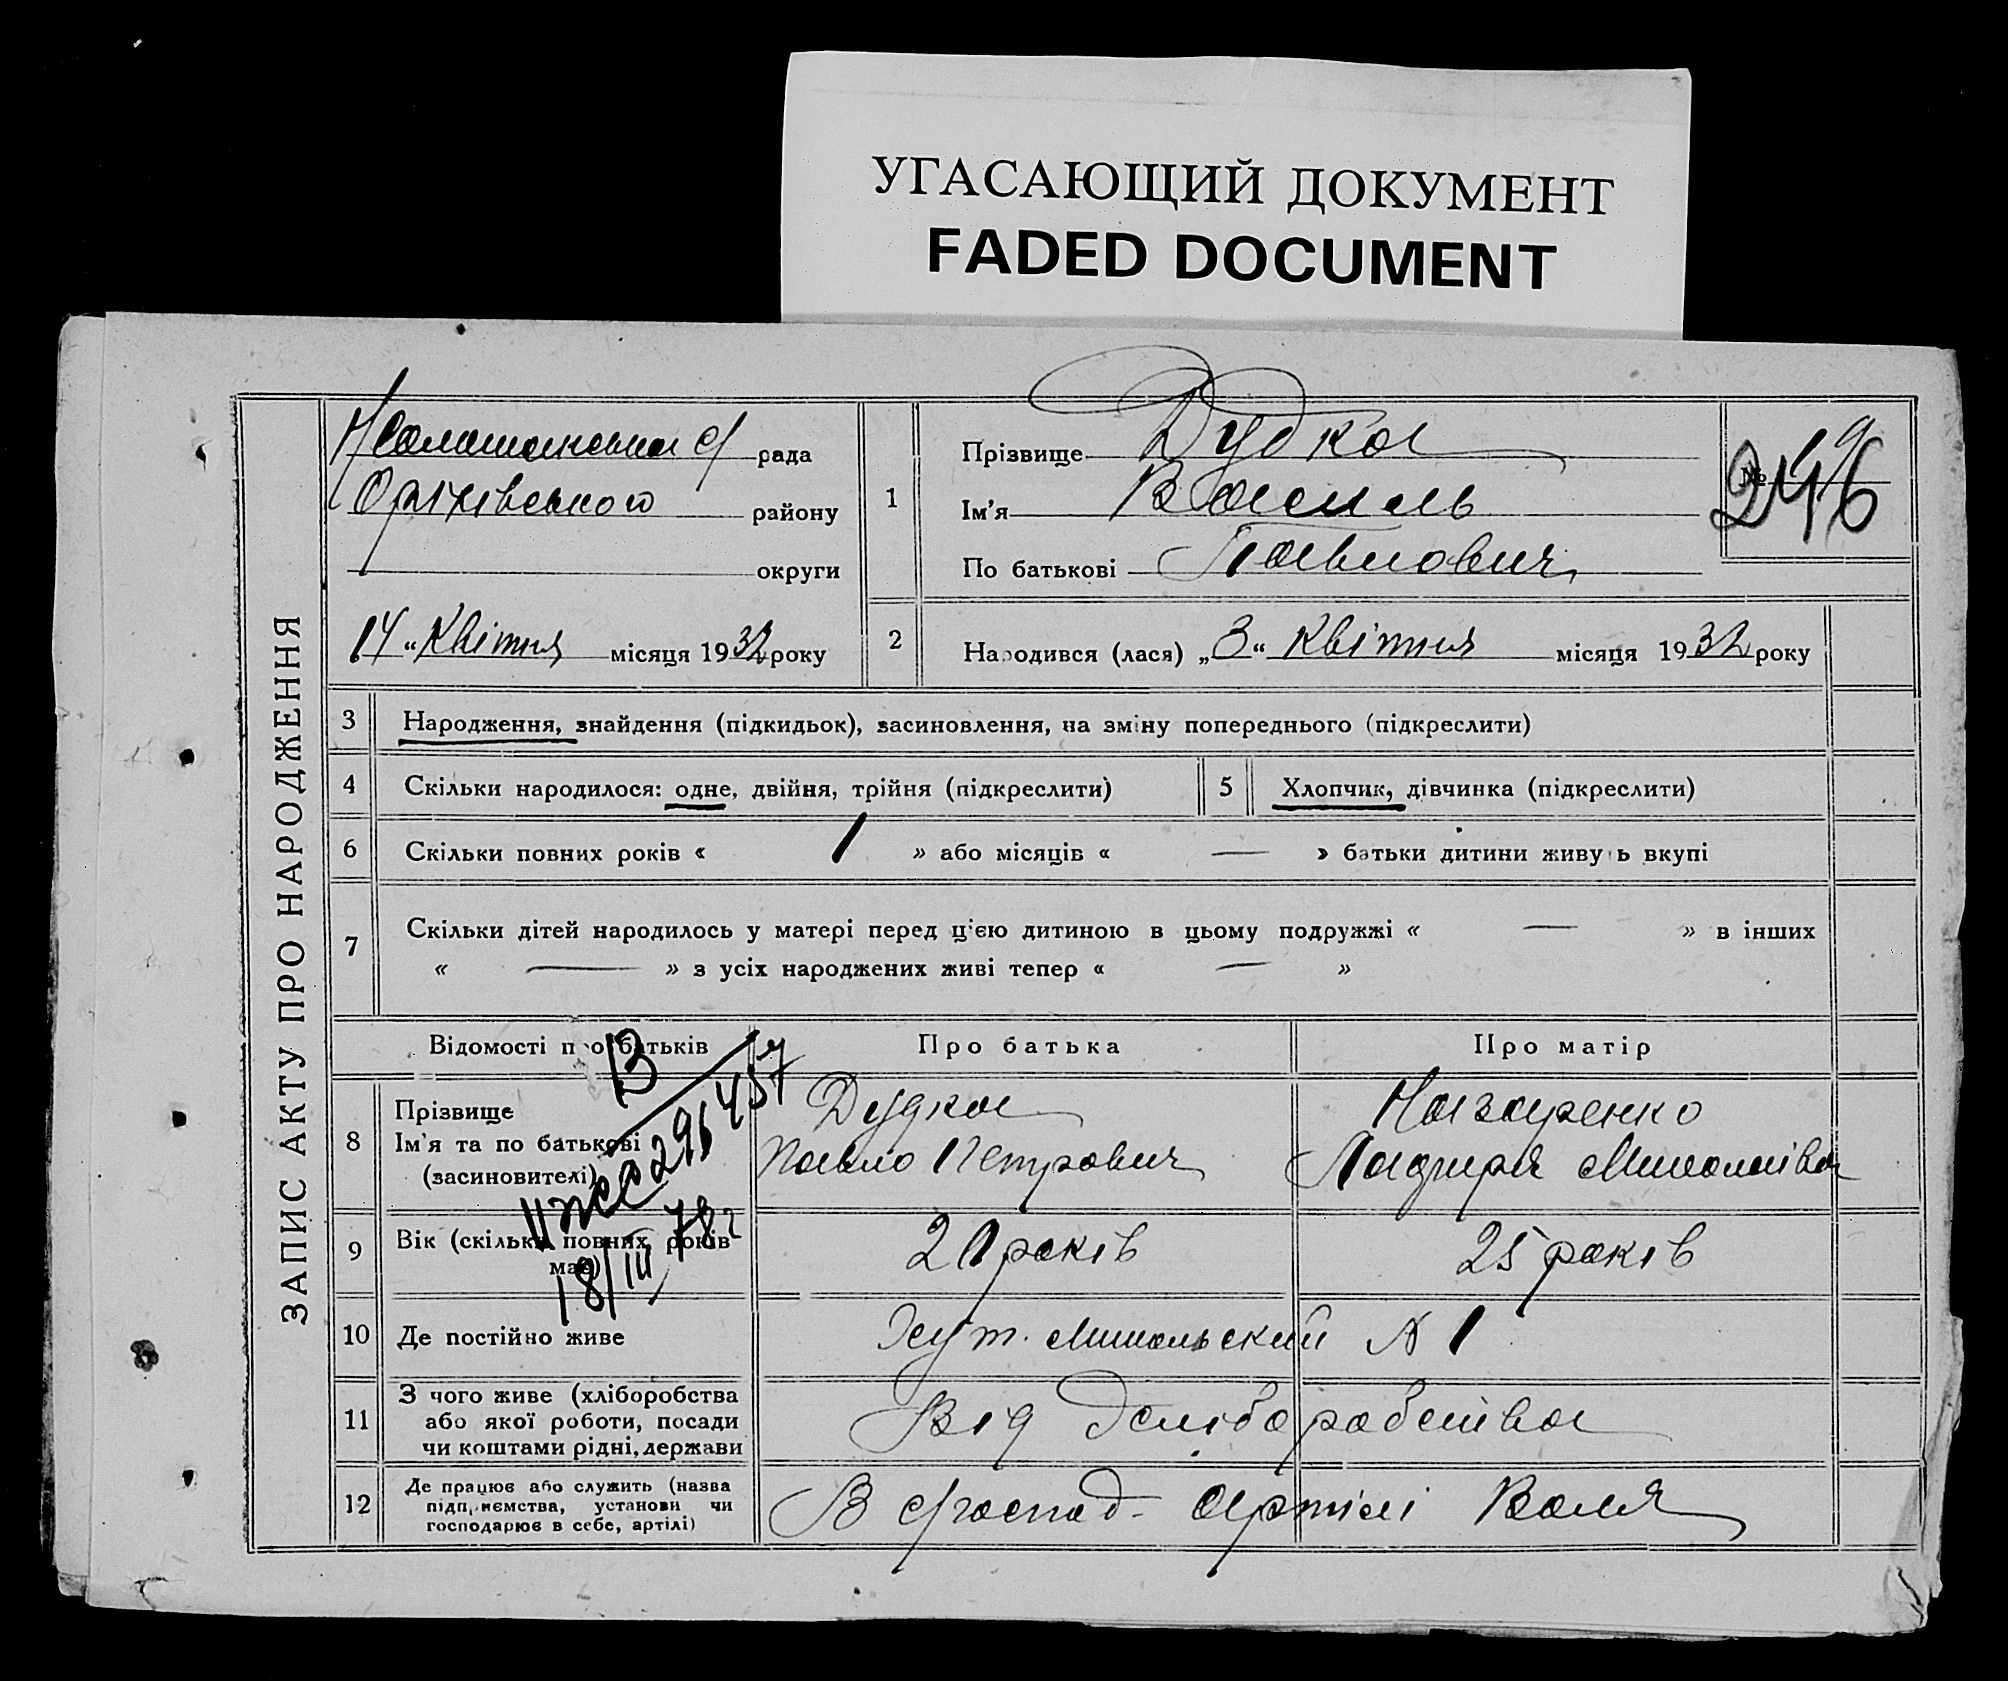 УГАСАЮЩИЙ ДОКУМЕНТ
FADED DOCUMENT
ЗАПИС АКТУ ПРО НАРОДЖЕННЯ
рада
району
округи
14 “ Квітня місяця 1932 року
1
Прізвище Дудка
Ім'я Василь
По батькові Павлович
№
246
2 Народився (лася) „3“ Квітня місяця 1932 року
3 Народження, знайдення (підкидьок), засиновлення, на зміну попереднього (підкреслити)
4 Скільки народилося: одне, двійня, трійня (підкреслити) 5 Хлопчик, дівчинка (підкреслити)
6 Скільки повних років « 1 » або місяців « — » батьки дитини живуть вкупі
7 Скільки дітей народилось у матері перед ц'єю дитиною в цьому подружжі « — » в інших
« — » з усіх народжених живі тепер « — »
Відомості про батьків Про батька Про матір
8 Прізвище
Ім'я та по батькові
(засиновителі)
Дудка
Павло Петрович
Назаренко
Миколаівна
9 Вік (скільки повних років має)
21 років 25 років
18/III 78 г
10 Де постійно живе Хут. Микольский № 1
11 З чого живе (хліборобства
або якої роботи, посади
чи коштами рідні, держави
Від хліборобства
12 Де працює або служить (назва
підприємства, установи чи
господарює в себе, артілі)
В с/господ. Артілі Воля